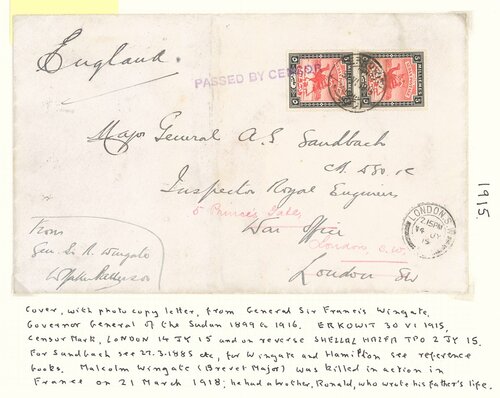 England.
PASSED BY CENSOR
Major General A.E. Sandbach
C.B. DSO. RE
Inspector Royal Engineers
5 Prince's Gate,
War Office
London, S.W.
London SW
From
Gen. Sir R. Wingate
LONDON.S.W
2.15PM
14 JY
15
1915.
Cover, with photo copy letter, from General Sir Francis Wingate,
Governor General of the Sudan 1899 to 1916. ERKOWIT 30 VI 1915,
Censor Mark, LONDON 14 JY 15 and on reverse SHELLAL HALFA TPO 2 JY 15.
For Sandbach see 27.3.1885 etc, for Wingate and Hamilton see reference
books. Malcolm Wingate (Brevet Major) was killed in action in
France on 21 March 1918; he had a brother, Ronald, who wrote his father's life.